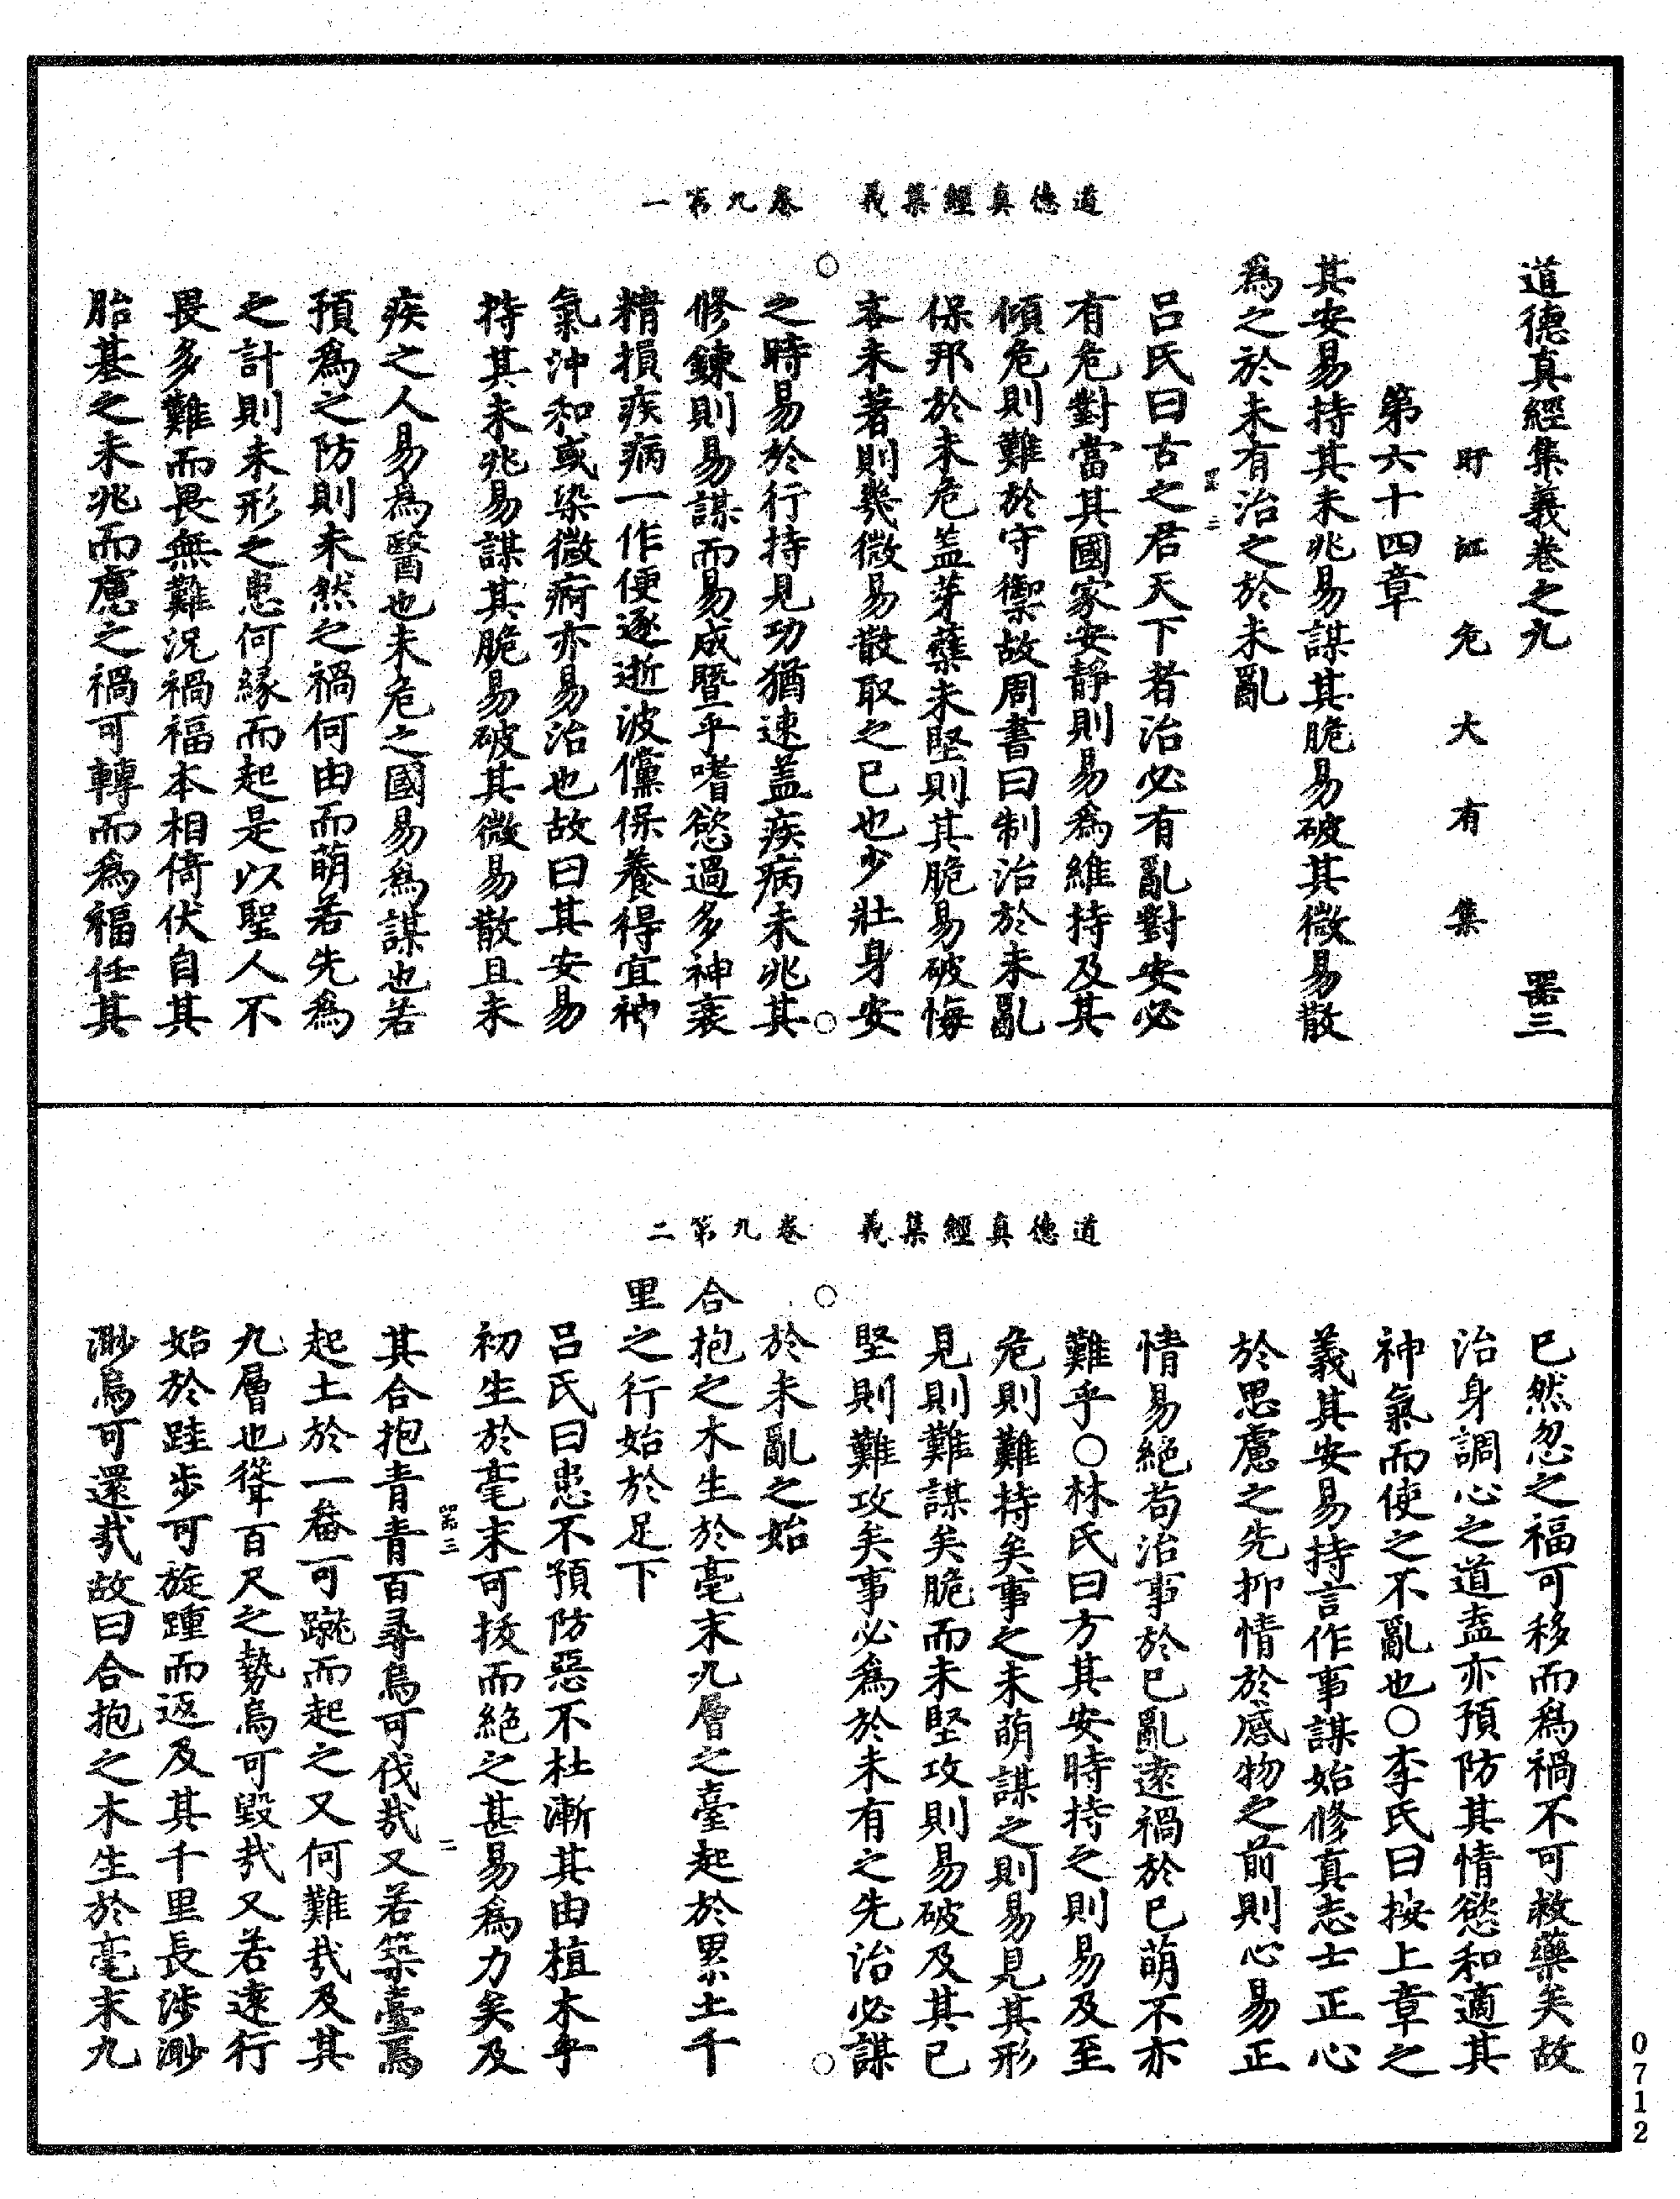 道德真經集義　卷九第一
道德真經集義卷之九　　器三
盱江危大有集
第六十四章
其安易持其未兆易謀其脆易破其微易散
爲之於未有治之於未亂
呂氏曰古之君天下者治必有亂對安必
有危對當其國家安靜則易爲維持及其
傾危則難於守禦故周書曰制治於未亂
保邦於未危蓋芽蘖未堅則其脆易破悔
吝未著則幾微易散取之已也少壯身安
之時易於行持見功猶速蓋疾病未兆其
修鍊則易謀而易成暨乎嗜慾過多神衰
精損疾病一作便逐逝波儻保養得宜神
氣沖和或染微痾亦易治也故曰其安易
持其未兆易謀其脆易破其微易散且未
疾之人易爲醫也未危之國易爲謀也若
預爲之防則未然之禍何由而萌若先爲
之計則未形之患何緣而起是以聖人不
畏多難而畏無難況禍福本相倚伏自其
胎基之未兆而慮之禍可轉而爲福任其
道德真經集義　卷九第二
已然忽之福可移而爲禍不可救藥矣故
治身調心之道盍亦預防其情慾和適其
神氣而使之不亂也○李氏曰按上章之
義其安易持言作事謀始修真志士正心
於思慮之先抑情於感物之前則心易正
情易絕苟治事於已亂遠禍於已萌不亦
難乎○林氏曰方其安時持之則易及至
危則難持矣事之未萌謀之則易見其形
見則難謀矣脆而未堅攻則易破及其已
堅則難攻矣事必爲於未有之先治必謀
於未亂之始
合抱之木生於毫末九層之臺起於累土千
里之行始於足下
呂氏曰患不預防惡不杜漸其由植木乎
初生於毫末可拔而絕之甚易爲力矣及
其合抱青青百尋烏可伐哉又若築臺焉
起土於一畚可蹴而起之又何難哉及其
九層也聳百尺之勢烏可毀哉又若遠行
始於跬步可旋踵而返及其千里長涉渺
渺烏可還哉故曰合抱之木生於毫末九
0712